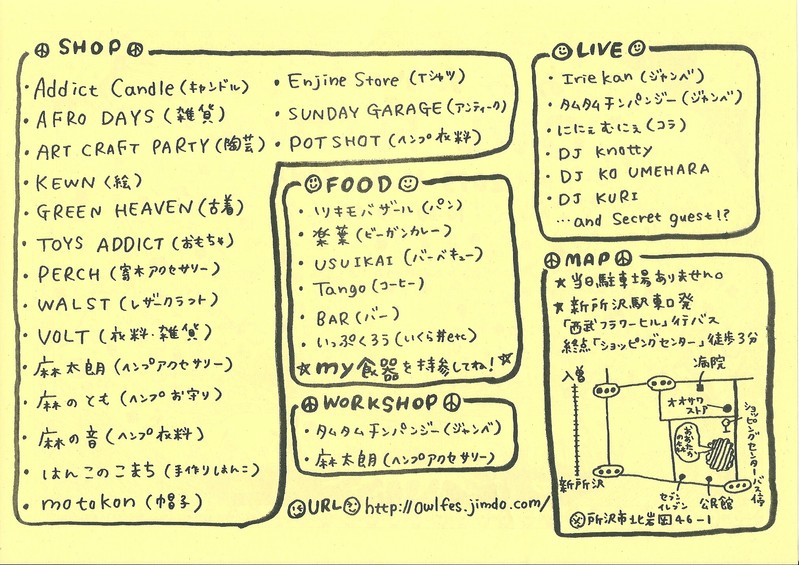 SHOP
・Addict Candle(キャンドル)
・AFRO DAYS(雑貨)
・ART CRAFT PARTY(陶芸)
・KEWN(絵)
・GREEN HEAVEN(古着)
・TOYS ADDICT(おもちゃ)
・PERCH(寄木アクセサリー)
・WALST(レザークラフト)
・VOLT(衣料・雑貨)
・麻太朗(ヘンプアクセサリー)
・麻のとも(ヘンプお守り)
・麻の音(ヘンプ衣料)
・はんこのこまち(手作りはんこ)
・motokon(帽子)
・Enjine Store(Tシャツ)
・SUNDAY GARAGE(アンティーク)
・POTSHOT(ヘンプ衣料)
FOOD
・ソリキモバザール(パン)
・楽葉(ビーガンカレー)
・USUIKAI(バーベキュー)
・Tango(コーヒー)
・BAR(バー)
・いっぷくろう(いくら丼etc)
☆my食器を持参してね!☆
WORKSHOP
・タムタムチンパンジー(ジャンベ)
・麻太朗(ヘンプアクセサリー)
URL http://owlfes.jimdo.com/
LIVE
・Irie kan(ジャンベ)
・タムタムチンパンジー(ジャンベ)
・ににぇむにぇ(コラ)
・DJ knotty
・DJ KO UMEHARA
・DJ KURI
…and Secret guest!?
MAP
★当日駐車場ありません。
★新所沢駅東口発
「西武フラワーヒル」行バス
終点「ショッピングセンター」徒歩3分
入曽
病院
オオサワ
ストア
ショッピングセンターバス停
新所沢
セブン
イレブン
公民館
所沢市北岩岡46-1